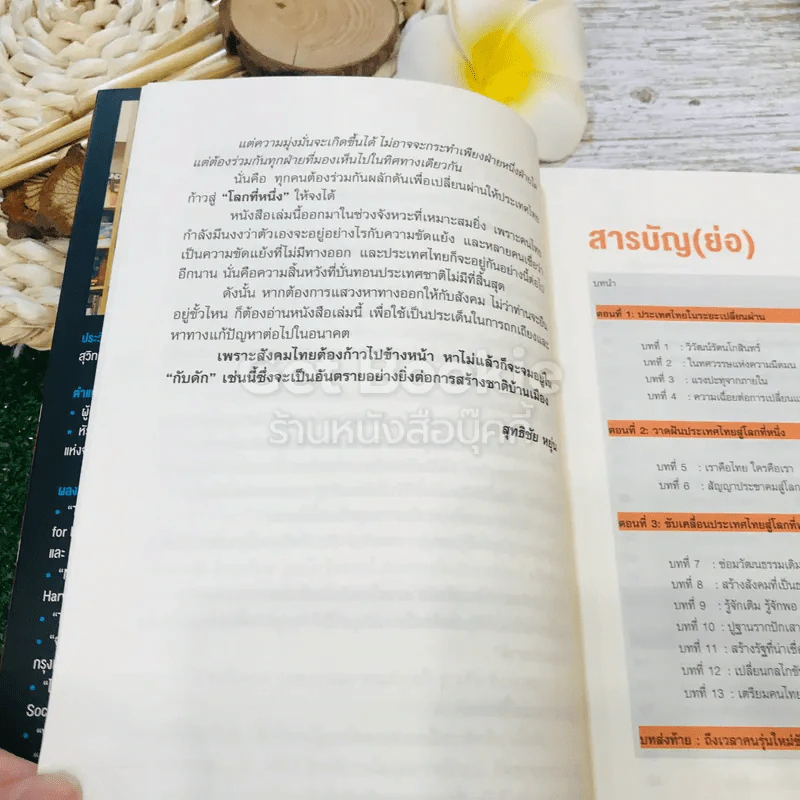 แต่ความมุ่งมั่นจะเกิดขึ้นได้ ไม่อาจจะกระทำเพียงฝ่ายหนึ่งฝ่ายใด
แต่ต้องร่วมกันทุกฝ่ายที่มองเห็นไปในทิศทางเดียวกัน
นั่นคือ ทุกคนต้องร่วมกันผลักดันเพื่อเปลี่ยนผ่านให้ประเทศไทย
ก้าวสู่ “โลกที่หนึ่ง” ให้จงได้
หนังสือเล่มนี้ออกมาในช่วงจังหวะที่เหมาะสมยิ่ง เพราะคนไทย
กำลังมึนงงว่าตัวเองจะอยู่อย่างไรกับความขัดแย้ง และหลายคนเชื่อว่า
เป็นความขัดแย้งที่ไม่มีทางออก และประเทศไทยก็จะอยู่กันอย่างนี้ต่อไป
อีกนาน นั่นคือความสิ้นหวังที่บั่นทอนประเทศชาติไม่มีที่สิ้นสุด
ดังนั้น หากต้องการแสวงหาทางออกให้กับสังคม ไม่ว่าท่านจะยืน
อยู่ขั้วไหน ก็ต้องอ่านหนังสือเล่มนี้ เพื่อใช้เป็นประเด็นในการถกเถียงและ
หาทางแก้ปัญหาต่อไปในอนาคต
เพราะสังคมไทยต้องก้าวไปข้างหน้า หาไม่แล้วก็จะจมอยู่ใน
“กับดัก” เช่นนี้ซึ่งจะเป็นอันตรายอย่างยิ่งต่อการสร้างชาติบ้านเมือง
สุทธิชัย หยุ่น
Get Bookie
ร้านหนังสือบุ๊คกี้
สารบัญ(ย่อ)
บทนำ
ตอนที่ 1: ประเทศไทยในระยะเปลี่ยนผ่าน
บทที่ 1 : วิวัฒน์รัตนโกสินทร์
บทที่ 2 : ในทศวรรษแห่งความมืดมน
บทที่ 3 : แรงปะทุจากภายใน
บทที่ 4 : ความเฉื่อยต่อการเปลี่ยนแ
ตอนที่ 2: วาดฝันประเทศไทยสู่โลกที่หนึ่ง
บทที่ 5 : เราคือไทย ใครคือเรา
บทที่ 6 : สัญญาประชาคมสู่โลก
ตอนที่ 3: ขับเคลื่อนประเทศไทยสู่โลกที่ห
บทที่ 7 : ซ่อมวัฒนธรรมเดิม
บทที่ 8 : สร้างสังคมที่เป็นธ
บทที่ 9 : รู้จักเติม รู้จักพอ
บทที่ 10 : ปูฐานรากปักเสา
บทที่ 11 : สร้างรัฐที่น่าเชื่อ
บทที่ 12 : เปลี่ยนกลไกขั
บทที่ 13 : เตรียมคนไทย
บทส่งท้าย : ถึงเวลาคนรุ่นใหม่ขั
ประวั
สุวิท
ตำแ
ผู้
หั
แห่งจ
ผลง
for
และ
Har
กรุง
Soc